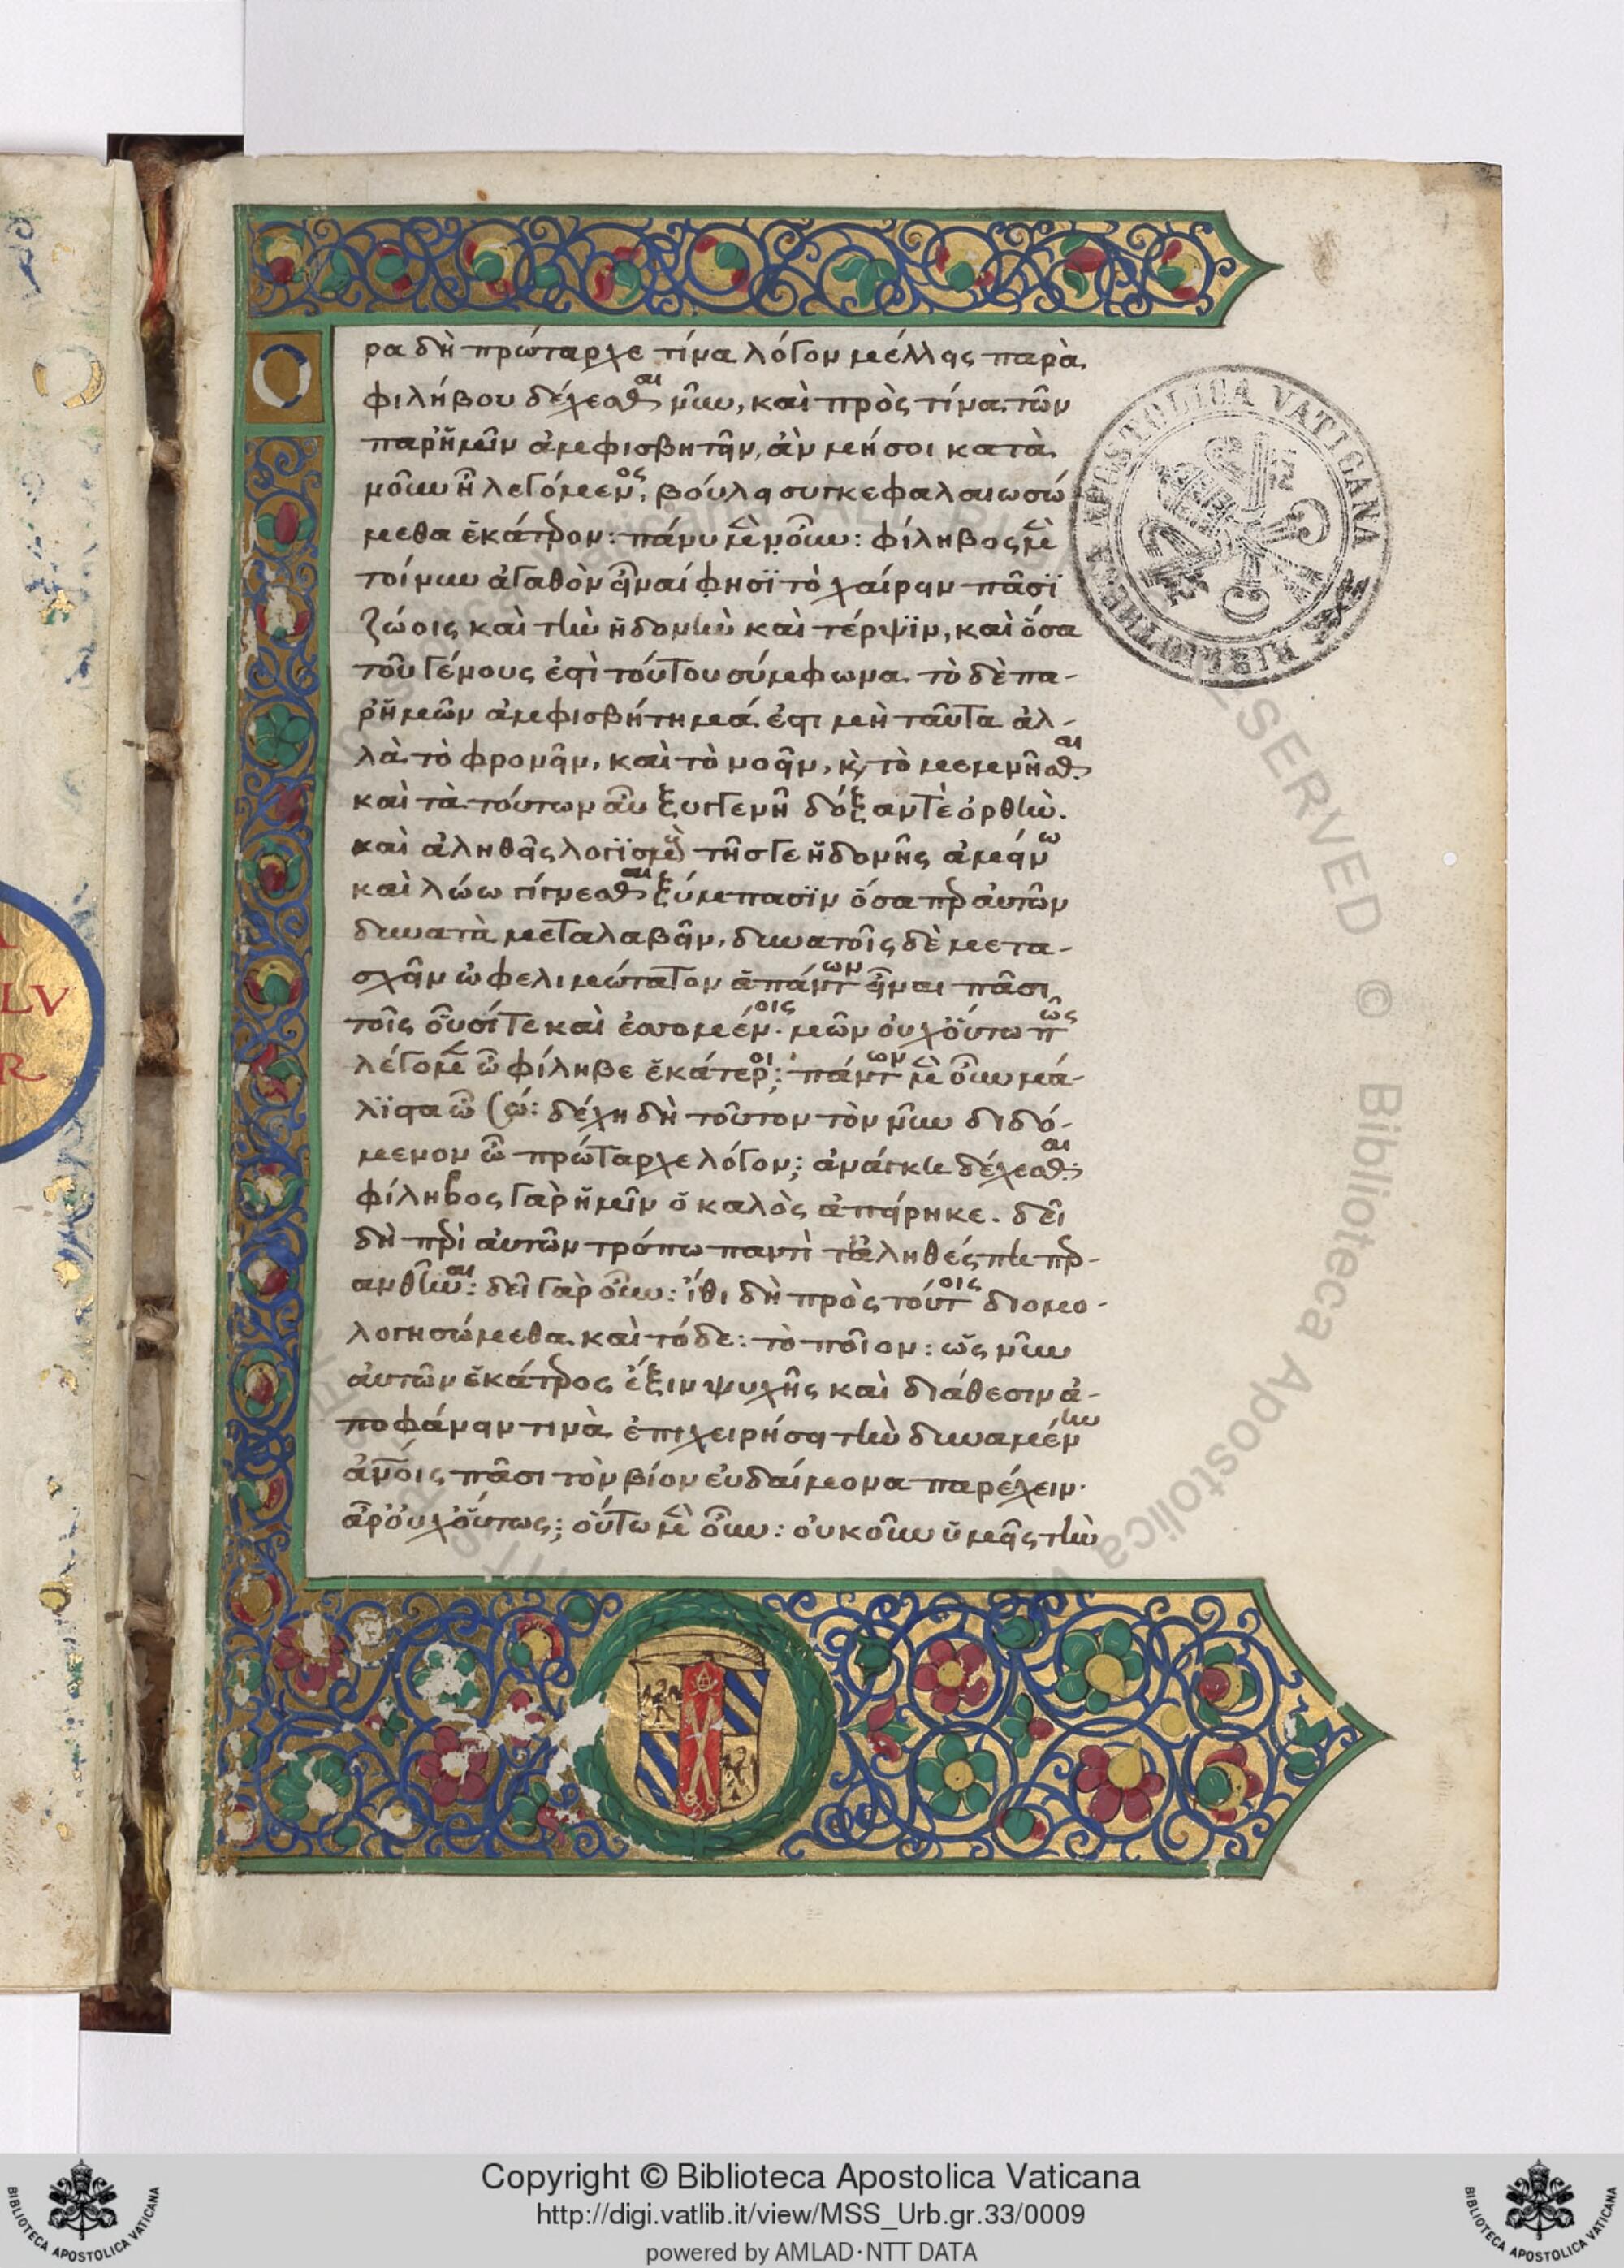 Ο
ρα δὴ πρώταρχε τίνα λόγον μέλλεις παρὰ
φιλήβου δέχεσθαι νῦν, καὶ πρὸς τίνα τῶν
παρ ἡμῖν ἀμφισβητεῖν, ἀν μή σοι κατὰ
νοῦν ἦ λεγόμενος; βούλει συγκεφαλαιωσώ
μεθα ἑκάτερον: πάνυ μὲν οὖν: φίληβος μὲν
τοίνυν ἀγαθὸν εἶναί φησϊ τὸ χαίρειν πᾶσϊ
ζώοις καὶ τὴν ἡδονὴν καὶ τέρψϊν, καὶ ὅσα
τοῦ γένους ἐστὶ τούτου σύμφωνα. τὸ δὲ πα-
ρ ἡμῶν ἀμφισβήτημά ἐστι μὴ ταῦτα ἀλ-
λὰ τὸ φρονεῖν, καὶ τὸ νοεῖν, κ τὸ μεμνῆσθαι
καὶ τὰ τούτων αὖ ξυγγενῆ δόξαν τὲ ὀρθὴν.
καὶ ἀληθεῖς λογϊσμοὺς τῆς γε ἡδονῆς ἀμείνω
καὶ λώω γίγνεσθαι ξύμπασϊν ὅσα περ αὐτῶν
δυνατὰ μεταλαβεῖν, δυνατοῖς δὲ μετα-
σχεῖν ὠφελιμώτατον ἁπάντων εἶναι πᾶσι
τοῖς οὖσί τε καὶ ἐσομένοις. μῶν οὐχ οὕτω πῶς
λέγομεν ὦ φίληβε ἑκάτεροι; πάντων μὲν οὖν μά-
λϊστα ὦ σώ: δέχη δὴ τοῦτον τὸν νῦν διδό-
μενον ὦ πρώταρχε λόγον; ἀνάγκη δέχεσθαι:
φίληβος γὰρ ἡμῖν ὁ καλὸς ἀπείρηκε. δεῖ
δὴ περὶ αὐτῶν τρόπω παντὶ τἀληθές πη περ-
ανθῆναι: δεῖ γὰρ οὖν: ἴθι δὴ πρὸς τούτοις διομο-
λογησώμεθα καὶ τόδε: τὸ ποῖον: ὡς νῦν
αὐτῶν ἑκάτερος ἕξιν ψυχῆς καὶ διάθεσιν ἀ-
ποφάνειν τινὰ ἐπιχειρήσει τὴν δυναμένην
ἀνοις πᾶσι τὸν βίον εὐδαίμονα παρέχειν.
ἆρ οὐχ οὕτως; οὕτω μὲν οὖν: οὐκοῦν ὑμεῖς τὴν
A
LV
R
BIBLIOTHECA APOSTOLICA VATICANA
Copyright © Biblioteca Apostolica Vaticana
http://digi.vatlib.it/view/MSS_Urb.gr.33/0009
powered by AMLAD·NTT DATA
BIBLIOTECA APOSTOLICA VATICANA
BIBLIOTECA APOSTOLICA VATICANA